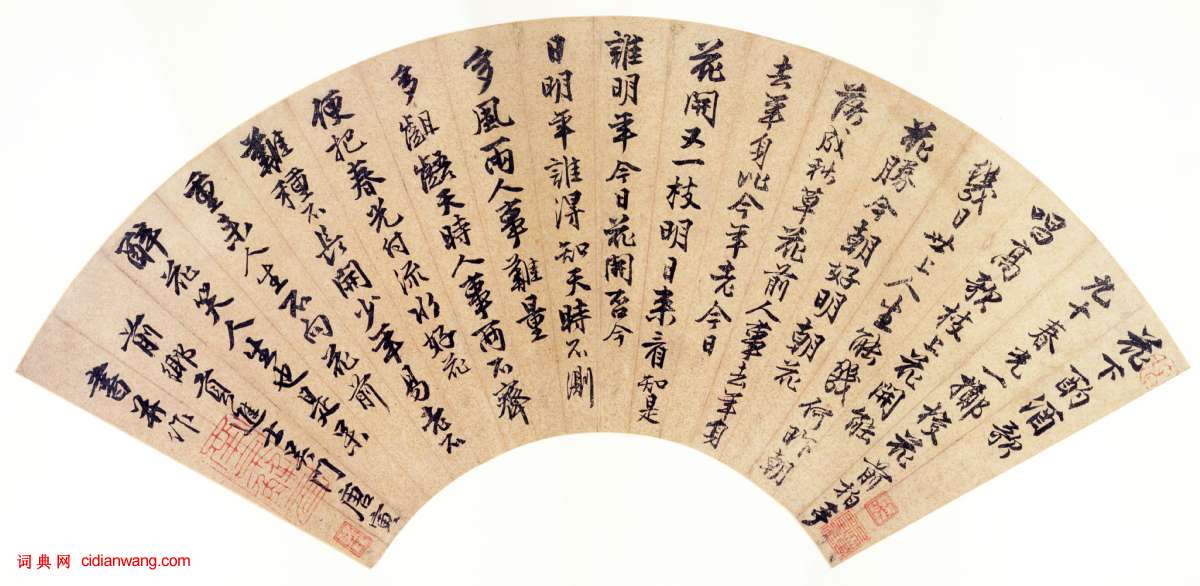 花下酌酒歌
九十春光一擲梭花前拍手
唱高歌枝上花開能
幾日世上人生能幾何昨朝
花勝今朝好明朝花
落成秋草花前人事去年身
去年身比今年老今日
花開又一枝明日来看知是
誰明年今日花開否今
日明年誰得知天時不測
多風雨人事難量
多齟齬天時人事兩不齊
便把春光付流水好花
難種不長開少年易老不
重来人生不向花前
醉花笑人生也是呆
前鄉貢進士吳門唐寅
書并作
词典网 cidianwang.com